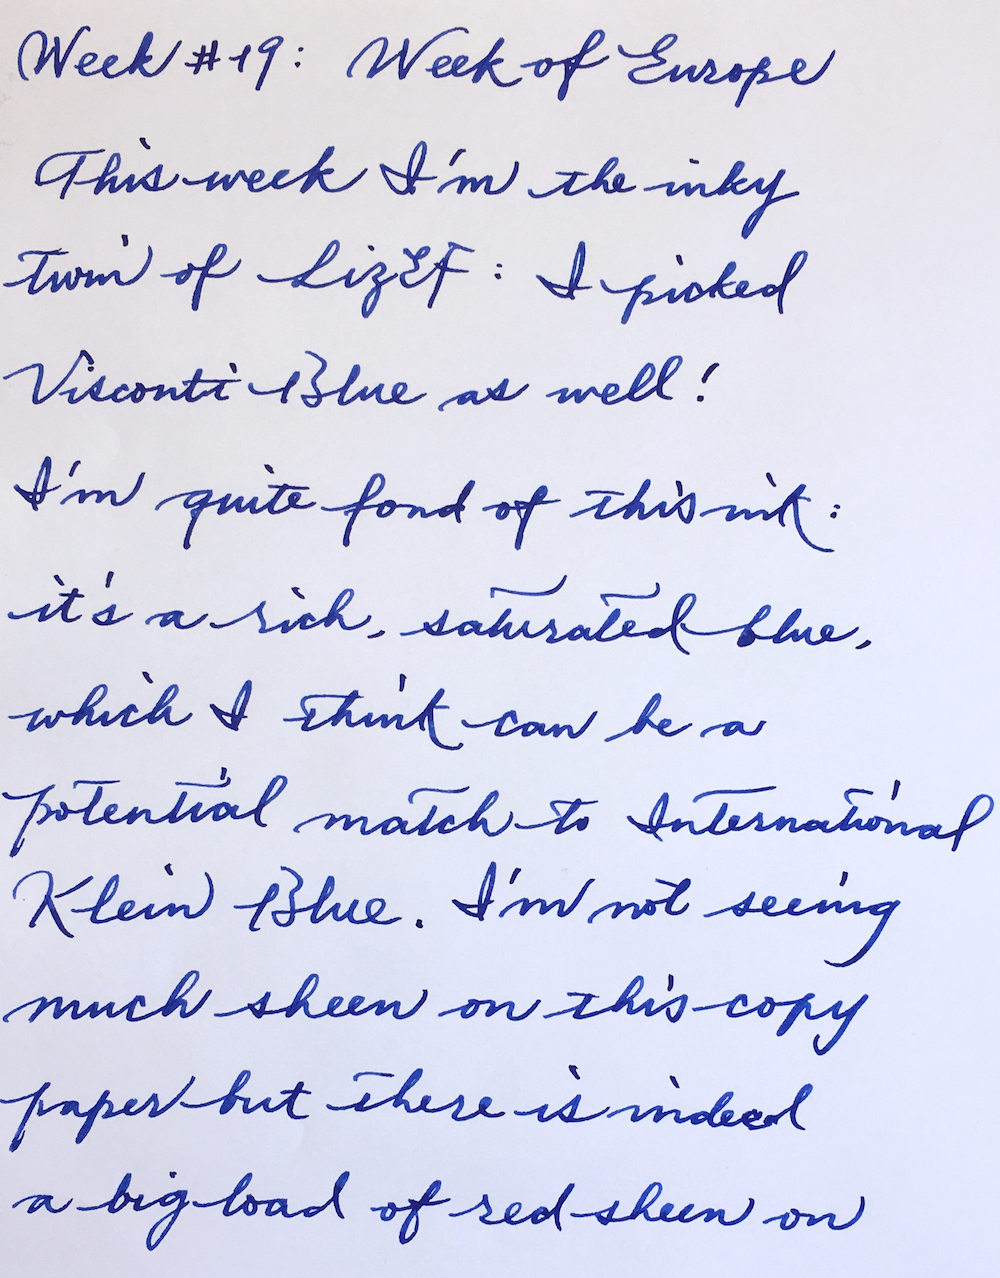 Week #19: Week of Europe
This week I'm the inky
twin of LizEF: I picked
Visconti Blue as well!
I'm quite fond of this ink:
it's a rich, saturated blue,
which I think can be a
potential match to International
Klein Blue. I'm not seeing
much sheen on this copy
paper but there is indeed
a big load of red sheen on